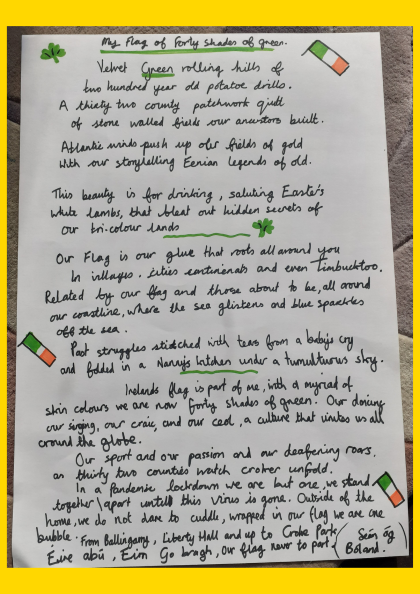 My Flag of Forty Shades of green.
Velvet Green rolling hills of
two hundred year old potatoe drills.
A thirty two county patchwork quilt
of stone walled fields our ancestors built.
Atlantic winds push up over fields of gold
with our storytelling Eenian legends of old.
This beauty is for drinking, saluting Easter's
white lambs, that bleat out hidden secrets of
our tri-colour lands
Our Flag is our glue that roots all around you
In villages. cities continenals and even Timbucktoo.
Related by our flag and those about to be, all around
our coastline, where the sea glistens and blue sparkles
off the sea.
Past struggles stitched with tears from a baby's cry
and folded in a Nanny's kitchen under a tumulturus sky.
Irelands flag is part of me, with a myriad of
skin colours we are now forty shades of green. Our dancing
our singing, our craic, and our ceol, a culture that unites us all
around the globe.
Our sport and our passion and our deafening roars,
as thirty two counties watch croker unfold.
In a Pandemic lockdown we are but one, we stand
together\apart untill this virus is gone. Outside of the
home, we do not dare to cuddle, wrapped in our flag we are one
bubble. From Ballingarry, Liberty Hall and up to Croke Park
Eire abú, Eirin Go bragh, our flag never to part.
(Seán óg
Boland.